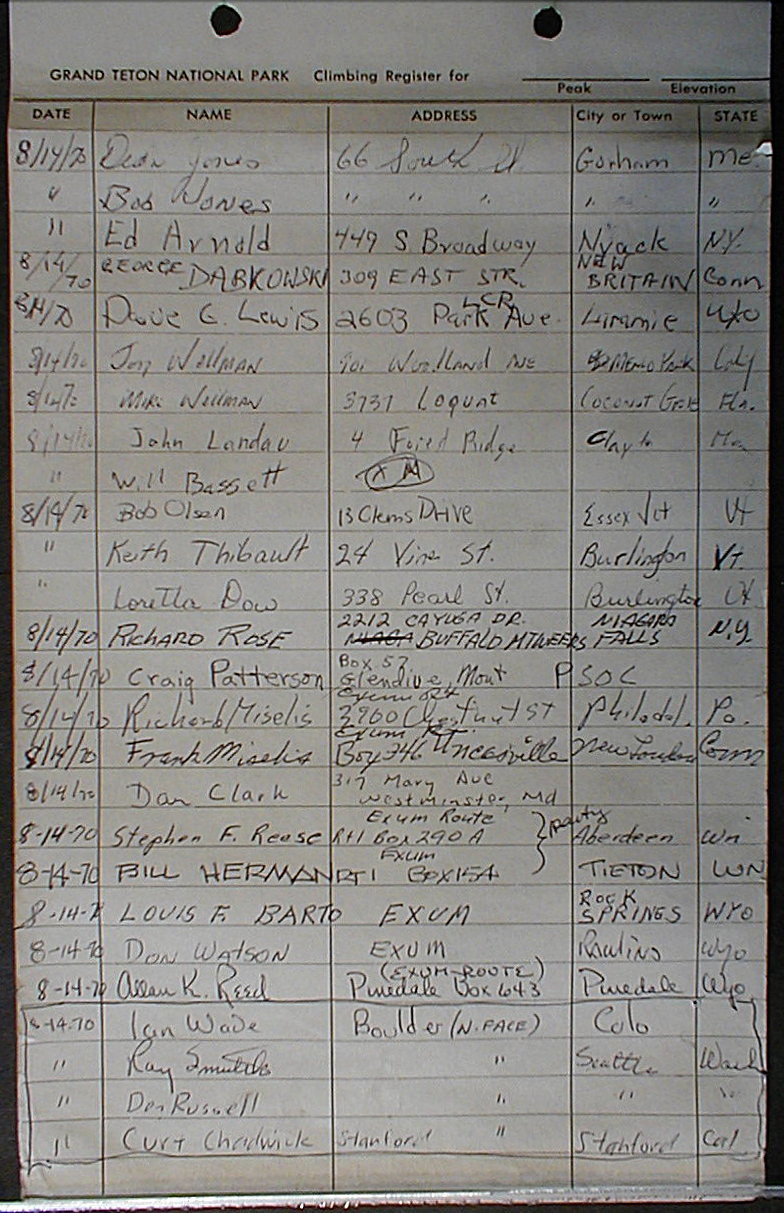 GRAND TETON NATIONAL PARK Climbing Register for
Peak Elevation
DATE NAME ADDRESS City or Town STATE
8/14/70 Jones 66 South St. Gorham Me.
" Bob Jones " " " " "
" Ed Arnold 449 S Broadway Nyack NY.
8/14/70 GEORGE DABKOWSKI 309 EAST STR. NEW BRITAIN Conn
8/14/70 Dave G. Lewis 2603 Park Ave. LCR Laramie Wyo
8/14/70 Jon Wellman 901 Woodland Ave Menlo Park
8/14/70 Mike Wellman 3737 Loquat Coconut Grove Fla.
8/14/70 John Landau 4 Ridge Mo
" Will Bassett XM
8/14/70 Bob Olsen 13 Clems Drive Essex Jct Vt
" Keith Thibault 24 Vine St. Burlington Vt.
" Loretta Dow 338 Pearl St. Burlington Vt
8/14/70 RICHARD ROSE 2212 CAYUGA DR. NIAGARA FALLS N.Y.
BUFFALO MTNEERS
8/14/70 Craig Patterson Box 57 Glendive, Mont PSOC
Exum Rt
8/14/70 Richard Miselis 3960 Chestnut St Philadel. Pa.
Exum Rt.
8/14/70 Frank Miselis Box 246 Uncasville New London Conn
8/14/70 Dan Clark 317 Mary Ave
Westminster, Md
Exum Route } party
8-14-70 Stephen F. Reese Rt 1 Box 290 A Aberdeen Wn
Exum
8-14-70 BILL HERMAN RT 1 BOX 15A TIETON WN
8-14-7 LOUIS F. BARTO EXUM ROCK SPRINGS WYO
8-14-70 DON WATSON EXUM Rawlins Wyo
(EXUM ROUTE)
8-14-70 Allan K. Reed Pinedale Box 643 Pinedale Wyo
8-14-70 Ian Wade Boulder (N. FACE) Colo
" Ray " Seattle Wash
" Russell " " "
" Curt Chadwick Stanford " Stanford Cal